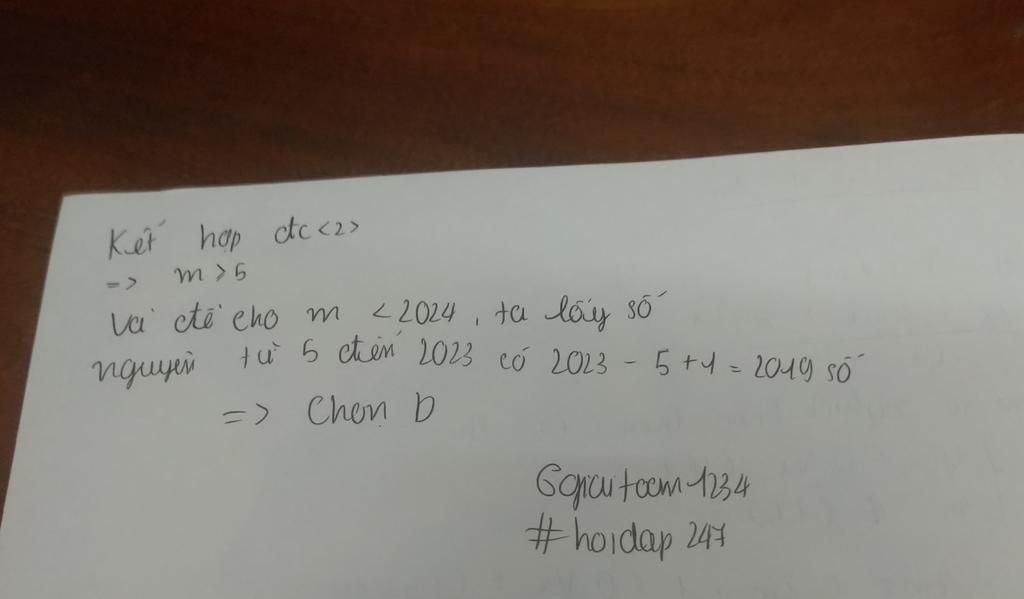 Kết hợp đk <2>
=> m > 5
Và đề cho m < 2024, ta lấy số
nguyên từ 5 đến 2023 có 2023 - 5 + 1 = 2019 số
=> Chọn D
#hoidap 247